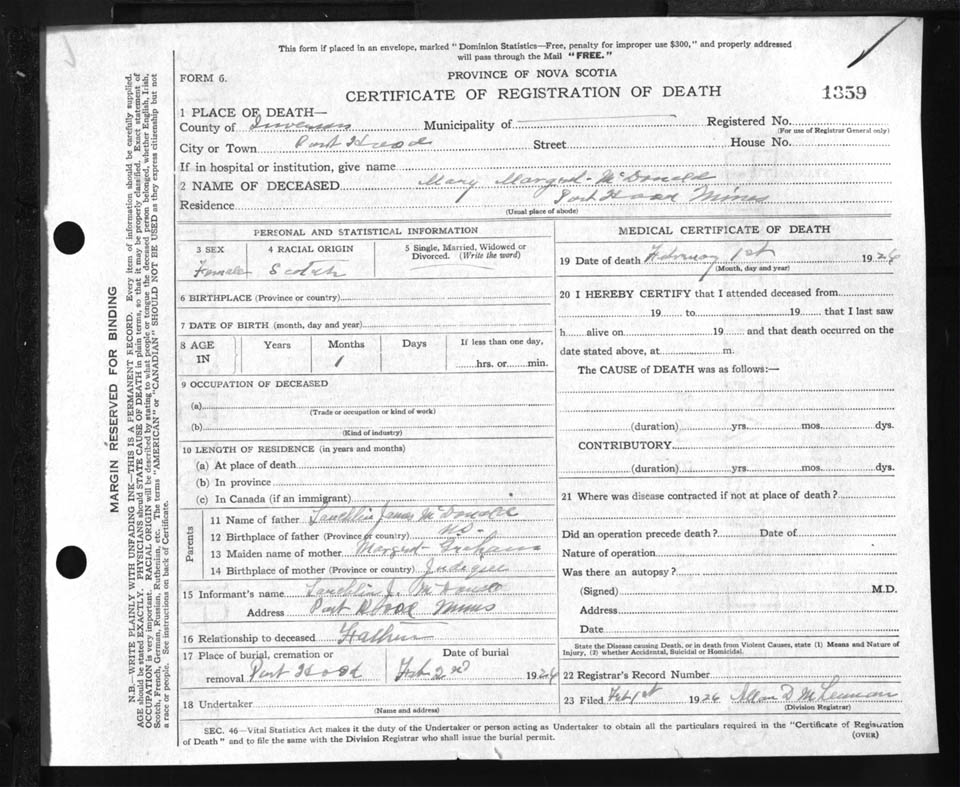 This form if placed in an envelope, marked "Dominion Statistics—Free, penalty for improper use $300," and properly addressed
will pass through the Mail "FREE."
FORM 6.
PROVINCE OF NOVA SCOTIA
CERTIFICATE OF REGISTRATION OF DEATH
1359
1 PLACE OF DEATH—
County of Inverness Municipality of Registered No.
(For use of Registrar General only)
City or Town Port Hood Street House No.
If in hospital or institution, give name
2 NAME OF DECEASED Mary Margret McDonald
Residence Port Hood Mines
(Usual place of abode)
PERSONAL AND STATISTICAL INFORMATION
3 SEX 4 RACIAL ORIGIN 5 Single, Married, Widowed or
Divorced. (Write the word)
Female Scotch
6 BIRTHPLACE (Province or country)
7 DATE OF BIRTH (month, day and year)
8 AGE IN Years Months Days If less than one day,
1 hrs. or min.
9 OCCUPATION OF DECEASED
(a)
(Trade or occupation or kind of work)
(b)
(Kind of industry)
10 LENGTH OF RESIDENCE (in years and months)
(a) At place of death
(b) In province
(c) In Canada (if an immigrant)
Parents
11 Name of father Lauchlin James McDonald
12 Birthplace of father (Province or country) N.S.
13 Maiden name of mother Margret Graham
14 Birthplace of mother (Province or country) Judique
15 Informant's name Lauchlin J. McDonald
Address Port Hood Mines
16 Relationship to deceased Father
17 Place of burial, cremation or Date of burial
removal Port Hood Feb 2nd 1926
18 Undertaker
(Name and address)
MEDICAL CERTIFICATE OF DEATH
19 Date of death February 1st 1926
(Month, day and year)
20 I HEREBY CERTIFY that I attended deceased from
19 to 19 that I last saw
h alive on 19 and that death occurred on the
date stated above, at m.
The CAUSE of DEATH was as follows:—
(duration) yrs. mos. dys.
CONTRIBUTORY
(duration) yrs. mos. dys.
21 Where was disease contracted if not at place of death?
Did an operation precede death? Date of
Nature of operation
Was there an autopsy?
(Signed) M.D.
Address
Date
State the Disease causing Death, or in death from Violent Causes, state (1) Means and Nature of
Injury, (2) whether Accidental, Suicidal or Homicidal.
22 Registrar's Record Number
23 Filed Feb 1st 1926 Allan D McLennan
(Division Registrar)
SEC. 46—Vital Statistics Act makes it the duty of the Undertaker or person acting as Undertaker to obtain all the particulars required in the "Certificate of Registration
of Death" and to file the same with the Division Registrar who shall issue the burial permit.
(OVER)
MARGIN RESERVED FOR BINDING
N.B.—WRITE PLAINLY WITH UNFADING INK—THIS IS A PERMANENT RECORD. Every item of information should be carefully supplied.
AGE should be stated EXACTLY. PHYSICIANS should STATE CAUSE OF DEATH in plain terms, so that it may be properly classified. Exact statement of
OCCUPATION is very important. RACIAL ORIGIN will be described by stating to what people or tongue the deceased person belonged, whether English, Irish,
Scotch, French, German, Russian, Ruthenian, etc. The terms "AMERICAN" or "CANADIAN" SHOULD NOT BE USED as they express citizenship but not
a race or people. See instructions on back of Certificate.